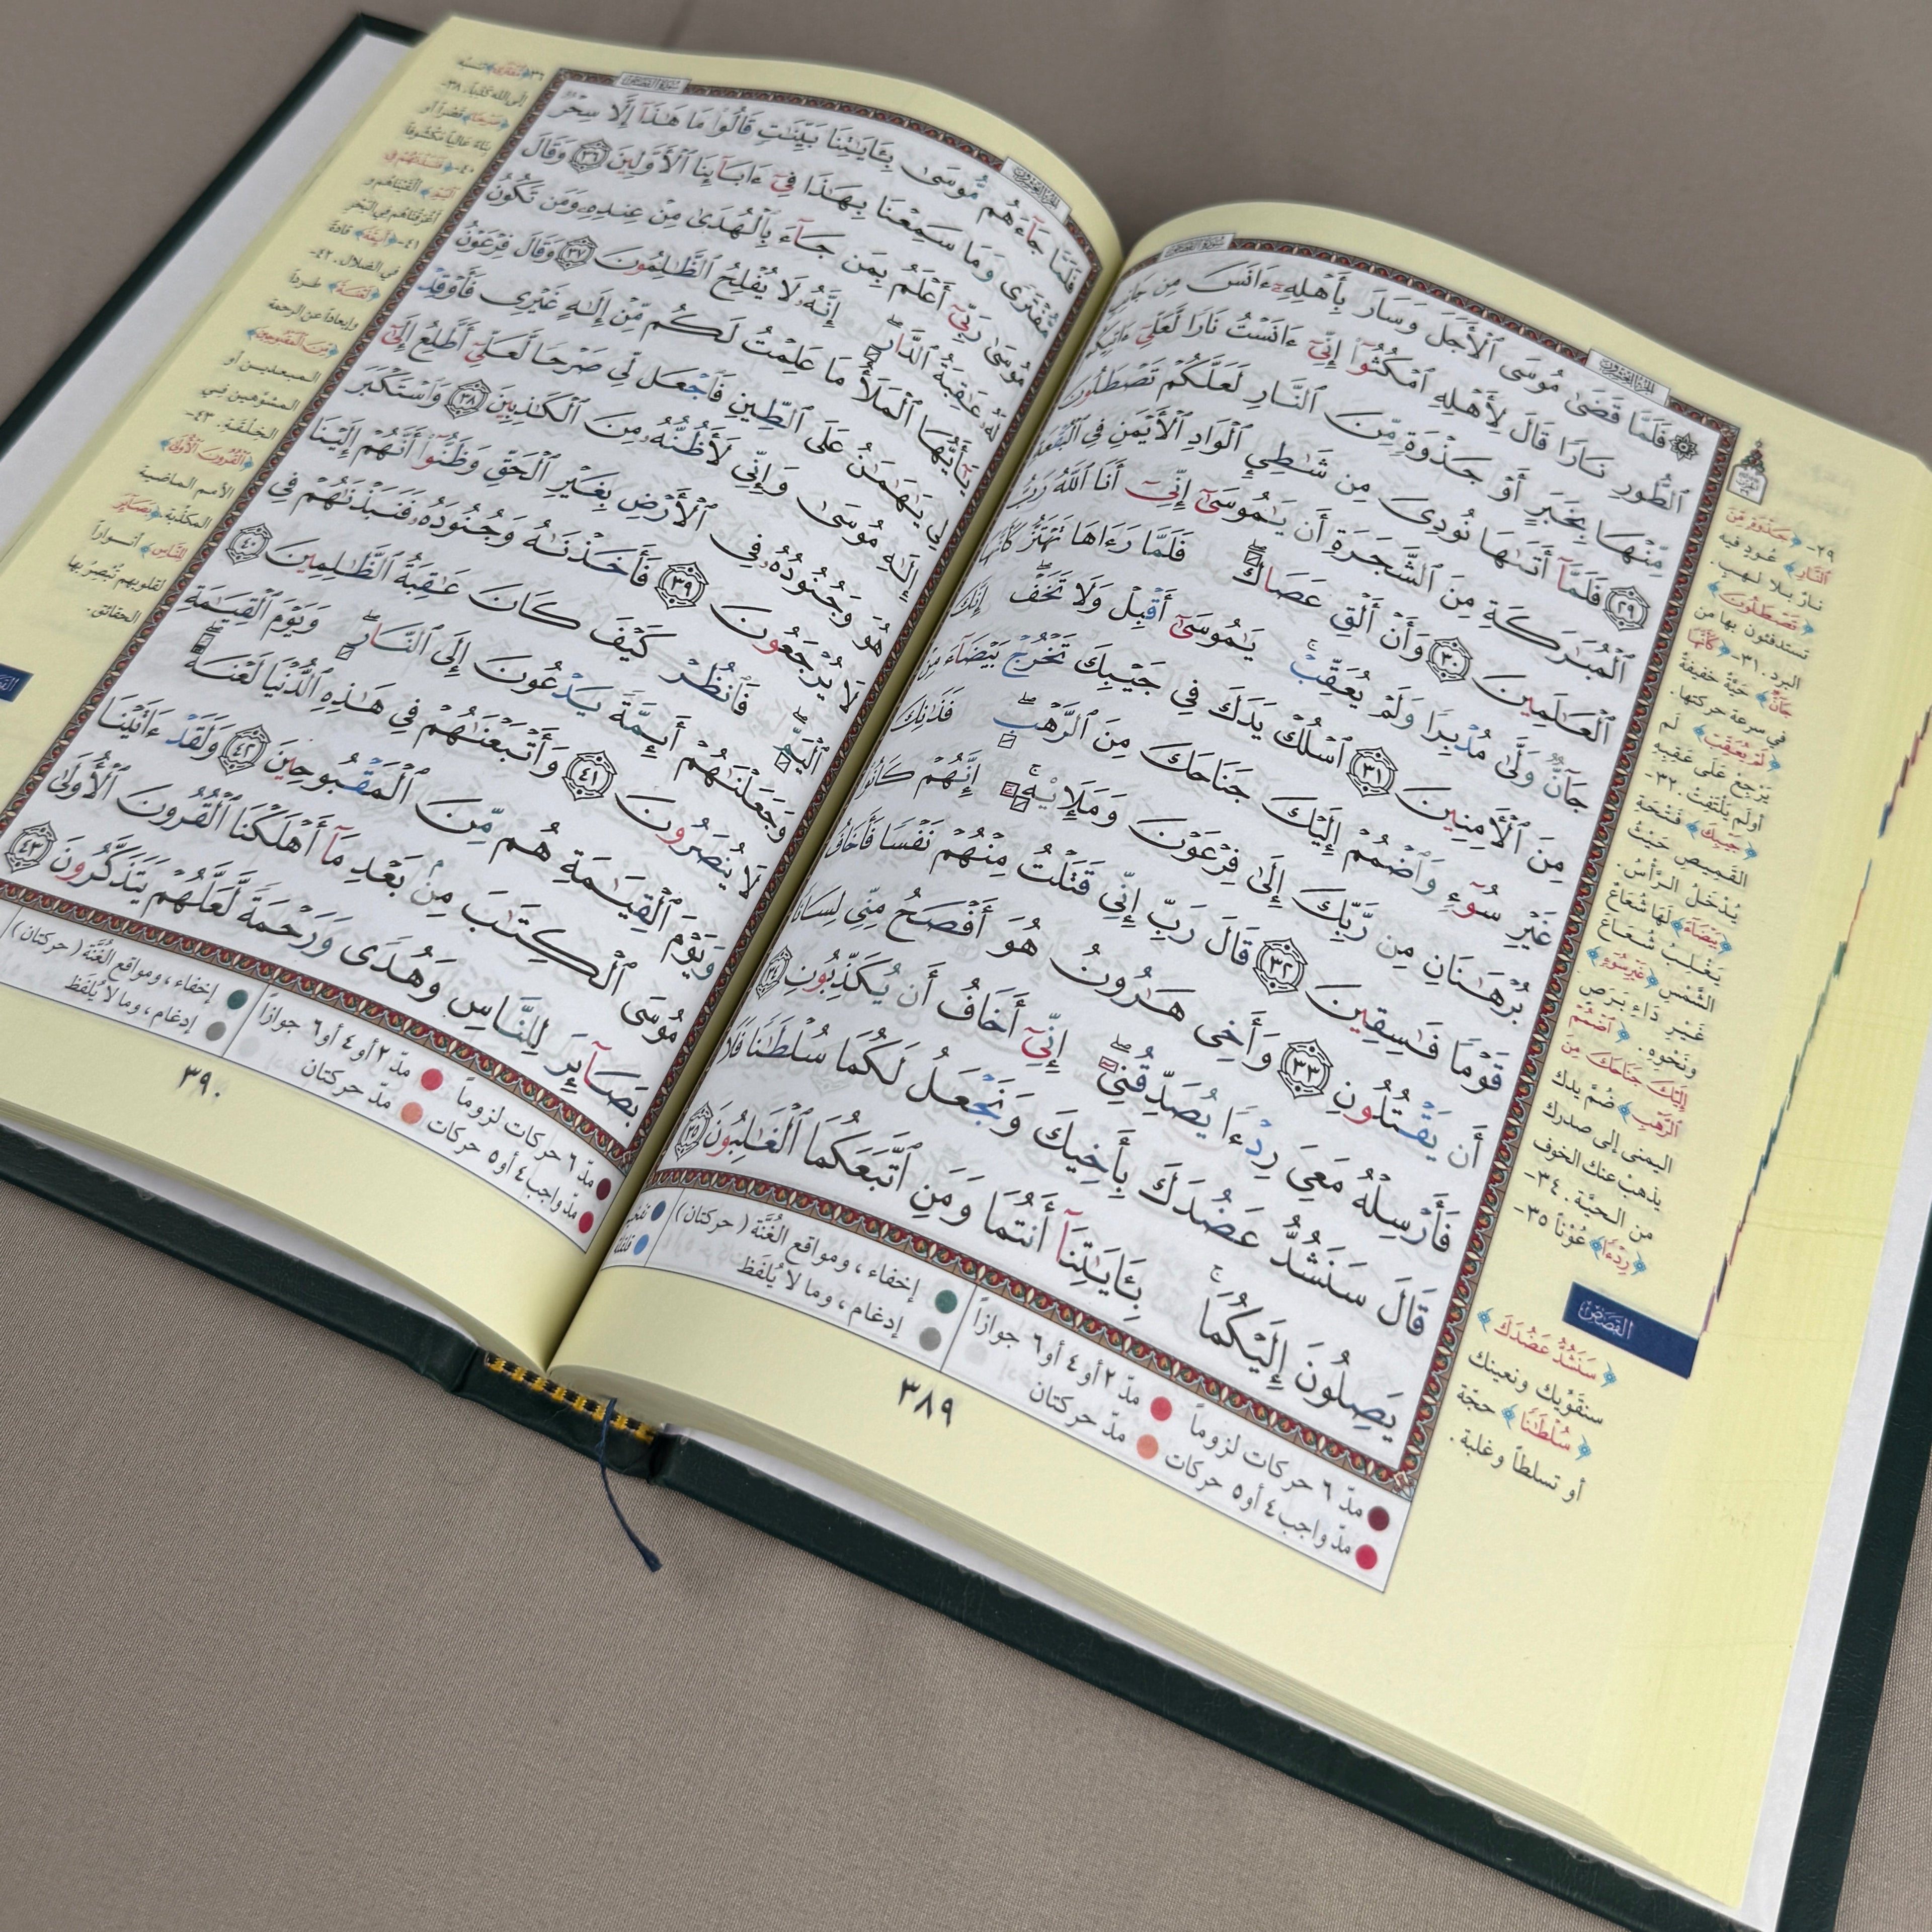 سورة القصص
الجزء العشرون
۞ فَلَمَّا قَضَىٰ مُوسَى ٱلْأَجَلَ وَسَارَ بِأَهْلِهِۦٓ ءَانَسَ مِن جَانِبِ
ٱلطُّورِ نَارًا قَالَ لِأَهْلِهِ ٱمْكُثُوٓا۟ إِنِّىٓ ءَانَسْتُ نَارًا لَّعَلِّىٓ ءَاتِيكُم
مِّنْهَا بِخَبَرٍ أَوْ جَذْوَةٍ مِّنَ ٱلنَّارِ لَعَلَّكُمْ تَصْطَلُونَ
٢٩ فَلَمَّآ أَتَىٰهَا نُودِىَ مِن شَٰطِئِ ٱلْوَادِ ٱلْأَيْمَنِ فِى ٱلْبُقْعَةِ
ٱلْمُبَٰرَكَةِ مِنَ ٱلشَّجَرَةِ أَن يَٰمُوسَىٰٓ إِنِّىٓ أَنَا ٱللَّهُ رَبُّ
ٱلْعَٰلَمِينَ ٣٠ وَأَنْ أَلْقِ عَصَاكَ فَلَمَّا رَءَاهَا تَهْتَزُّ كَأَنَّهَا
جَآنٌّ وَلَّىٰ مُدْبِرًا وَلَمْ يُعَقِّبْ يَٰمُوسَىٰٓ أَقْبِلْ وَلَا تَخَفْ إِنَّكَ
مِنَ ٱلْءَامِنِينَ ٣١ ٱسْلُكْ يَدَكَ فِى جَيْبِكَ تَخْرُجْ بَيْضَآءَ مِنْ
غَيْرِ سُوٓءٍ وَٱضْمُمْ إِلَيْكَ جَنَاحَكَ مِنَ ٱلرَّهْبِ فَذَٰنِكَ
بُرْهَٰنَانِ مِن رَّبِّكَ إِلَىٰ فِرْعَوْنَ وَمَلَإِي۟هِۦٓ إِنَّهُمْ كَانُوا۟
قَوْمًا فَٰسِقِينَ ٣٢ قَالَ رَبِّ إِنِّى قَتَلْتُ مِنْهُمْ نَفْسًا فَأَخَافُ
أَن يَقْتُلُونِ ٣٣ وَأَخِى هَٰرُونُ هُوَ أَفْصَحُ مِنِّى لِسَانًا
فَأَرْسِلْهُ مَعِىَ رِدْءًا يُصَدِّقُنِىٓ إِنِّىٓ أَخَافُ أَن يُكَذِّبُونِ ٣٤
قَالَ سَنَشُدُّ عَضُدَكَ بِأَخِيكَ وَنَجْعَلُ لَكُمَا سُلْطَٰنًا فَلَا
يَصِلُونَ إِلَيْكُمَا بِـَٔايَٰتِنَآ أَنتُمَا وَمَنِ ٱتَّبَعَكُمَا ٱلْغَٰلِبُونَ ٣٥
٢٩- ﴿جَذْوَةٍ مِّنَ
ٱلنَّارِ﴾ عُودٍ فيه
نارٌ بلا لهب.
﴿تَصْطَلُونَ﴾
تستدفئون بها من
البرد. ٣١- ﴿كَأَنَّهَا
جَآنٌّ﴾ حَيَّةٌ خفيفةٌ
في سرعة حركتها.
﴿لَمْ يُعَقِّبْ﴾ لم
يَرْجِعْ على عَقِبِهِ
أو لم يَلْتَفِتْ. ٣٢-
﴿جَيْبِكَ﴾ فَتْحَة
القميص حَيْثُ
يُدْخَلُ الرأسُ.
﴿بَيْضَآءَ﴾ لَهَا شُعَاعٌ
يَغْلِبُ شُعَاعَ
الشَّمْسِ ﴿غَيْرِ سُوٓءٍ﴾
غَيْرِ دَاءِ بَرَصٍ
ونَحْوِهِ. ﴿ٱضْمُمْ
إِلَيْكَ جَنَاحَكَ مِنَ
ٱلرَّهْبِ﴾ ضُمَّ يدك
اليمنى إلى صدرك
يذهبْ عنك الخوف
من الحيَّة. ٣٤-
﴿رِدْءًا﴾ عَوْنًا ٣٥-
القصص
﴿سَنَشُدُّ عَضُدَكَ﴾
سنقوّيك ونعينك
﴿سُلْطَٰنًا﴾ حجّة
أو تسلطاً وغلبة.
مدّ ٦ حركات لزوماً مدّ ٢ أو ٤ أو ٦ جوازاً إخفاء، ومواقع الغُنَّة (حركتان) تفخيم
مدّ واجب ٤ أو ٥ حركات مدّ حركتان إدغام، وما لا يُلفَظ قلقلة
٣٨٩
سورة القصص
الجزء العشرون
فَلَمَّا جَآءَهُم مُّوسَىٰ بِـَٔايَٰتِنَا بَيِّنَٰتٍ قَالُوا۟ مَا هَٰذَآ إِلَّا سِحْرٌ
مُّفْتَرًى وَمَا سَمِعْنَا بِهَٰذَا فِىٓ ءَابَآئِنَا ٱلْأَوَّلِينَ ٣٦ وَقَالَ
مُوسَىٰ رَبِّىٓ أَعْلَمُ بِمَن جَآءَ بِٱلْهُدَىٰ مِنْ عِندِهِۦ وَمَن تَكُونُ
لَهُۥ عَٰقِبَةُ ٱلدَّارِ إِنَّهُۥ لَا يُفْلِحُ ٱلظَّٰلِمُونَ ٣٧ وَقَالَ فِرْعَوْنُ
يَٰٓأَيُّهَا ٱلْمَلَأُ مَا عَلِمْتُ لَكُم مِّنْ إِلَٰهٍ غَيْرِى فَأَوْقِدْ
لِى يَٰهَٰمَٰنُ عَلَى ٱلطِّينِ فَٱجْعَل لِّى صَرْحًا لَّعَلِّىٓ أَطَّلِعُ إِلَىٰٓ
إِلَٰهِ مُوسَىٰ وَإِنِّى لَأَظُنُّهُۥ مِنَ ٱلْكَٰذِبِينَ ٣٨ وَٱسْتَكْبَرَ
هُوَ وَجُنُودُهُۥ فِى ٱلْأَرْضِ بِغَيْرِ ٱلْحَقِّ وَظَنُّوٓا۟ أَنَّهُمْ إِلَيْنَا
لَا يُرْجَعُونَ ٣٩ فَأَخَذْنَٰهُ وَجُنُودَهُۥ فَنَبَذْنَٰهُمْ فِى
ٱلْيَمِّ فَٱنظُرْ كَيْفَ كَانَ عَٰقِبَةُ ٱلظَّٰلِمِينَ ٤٠
وَجَعَلْنَٰهُمْ أَئِمَّةً يَدْعُونَ إِلَى ٱلنَّارِ وَيَوْمَ ٱلْقِيَٰمَةِ
لَا يُنصَرُونَ ٤١ وَأَتْبَعْنَٰهُمْ فِى هَٰذِهِ ٱلدُّنْيَا لَعْنَةً
وَيَوْمَ ٱلْقِيَٰمَةِ هُم مِّنَ ٱلْمَقْبُوحِينَ ٤٢ وَلَقَدْ ءَاتَيْنَا
مُوسَى ٱلْكِتَٰبَ مِنۢ بَعْدِ مَآ أَهْلَكْنَا ٱلْقُرُونَ ٱلْأُولَىٰ
بَصَآئِرَ لِلنَّاسِ وَهُدًى وَرَحْمَةً لَّعَلَّهُمْ يَتَذَكَّرُونَ ٤٣
٣٦- ﴿مُّفْتَرًى﴾ تَنْسِبُه
إلى الله كَذِباً. ٣٨-
﴿صَرْحًا﴾ قَصْراً أو
بِنَاءً عالياً مَكْشُوفاً
٤٠- ﴿فَنَبَذْنَٰهُمْ فِى
ٱلْيَمِّ﴾ ألقيناهم و
أغرقناهم في البَحْر
٤١- ﴿أَئِمَّةً﴾ قادة
في الضلال. ٤٢-
﴿لَعْنَةً﴾ طرداً
وإبعاداً عن الرحمة
﴿مِّنَ ٱلْمَقْبُوحِينَ﴾
المبعدين أو
المشوّهين في
الخِلْقَة. ٤٣-
﴿ٱلْقُرُونَ ٱلْأُولَىٰ﴾
الأمم الماضية
المكذّبة. ﴿بَصَآئِرَ
لِلنَّاسِ﴾ أنواراً
لقلوبهم تُبْصِرُ بها
الحقائق.
مدّ ٦ حركات لزوماً مدّ ٢ أو ٤ أو ٦ جوازاً إخفاء، ومواقع الغُنَّة (حركتان)
مدّ واجب ٤ أو ٥ حركات مدّ حركتان إدغام، وما لا يُلفَظ
٣٩٠